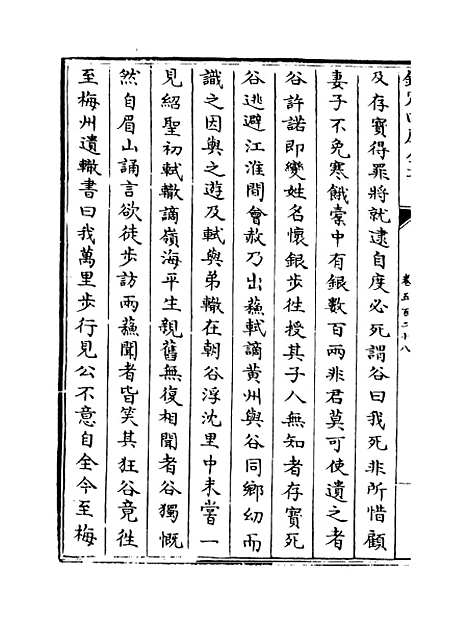 欽定四庫全書
卷五百二十八
及存寶得罪將就逮自度必死謂谷曰我死非所惜顧
妻子不免寒餓橐中有銀數百兩非君莫可使遺之者
谷許諾即變姓名懷銀步徃授其子人無知者存寶死
谷逃避江淮間會赦乃出蘇軾謫黄州與谷同鄉幼而
識之因與之遊及軾與弟轍在朝谷浮沈里中未嘗一
見紹聖初軾轍謫嶺海平生親舊無復相聞者谷獨慨
然自眉山誦言欲徒步訪兩蘇聞者皆笑其狂谷竟徃
至梅州遺轍書曰我萬里步行見公不意自全今至梅